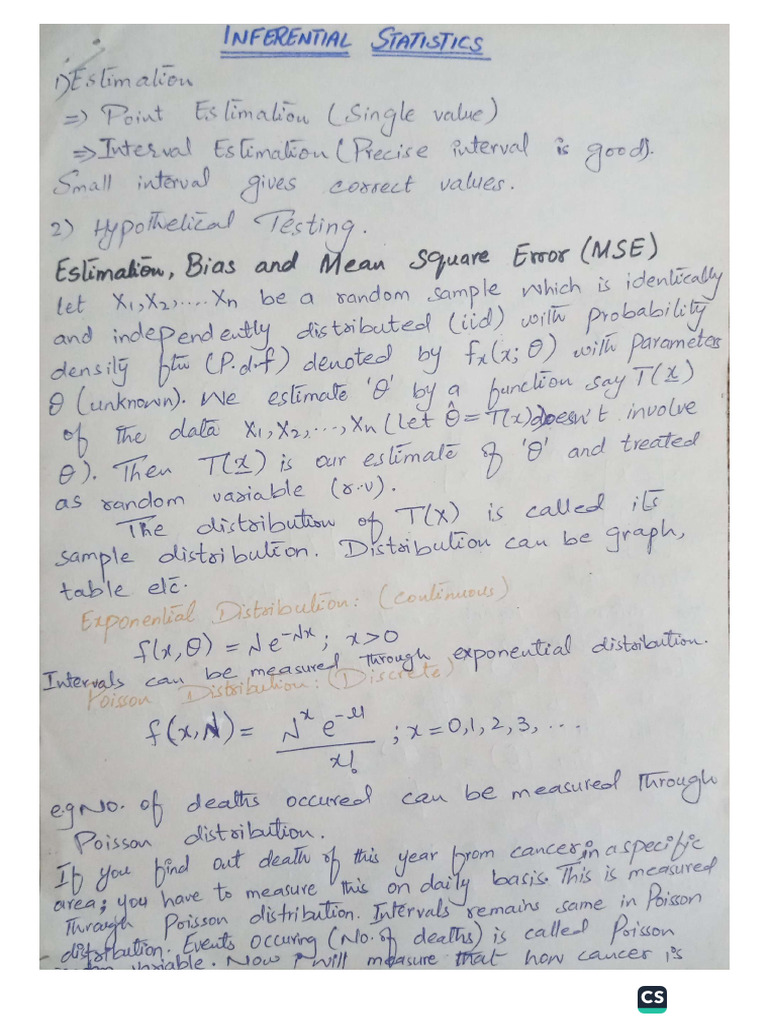 INFERENTIAL STATISTICS
1) Estimation
=> Point Estimation (Single value)
=> Interval Estimation (Precise interval is good).
Small interval gives correct values.
2) Hypothetical Testing.
Estimation, Bias and Mean Square Error (MSE)
let X₁, X₂, .... Xn be a random sample which is identically
and independently distributed (iid) with probability
density ftn (P.d.f) denoted by fx(x; θ) with parameters
θ (unknown). We estimate 'θ' by a function say T(x)
of the data X₁, X₂, ..., Xn (let θ̂ = T(x) doesn't involve
θ). Then T(x) is our estimate of 'θ' and treated
as random variable (r.v).
The distribution of T(X) is called its
sample distribution. Distribution can be graph,
table etc.
Exponential Distribution: (continuous)
f(x, θ) = λe^-λx ; x>0
Intervals can be measured through exponential distribution.
Poisson Distribution: (Discrete)
f(x, λ) = λ^x e^-λ / x! ; x = 0, 1, 2, 3, ...
e.g No. of deaths occured can be measured through
Poisson distribution.
If you find out death of this year from cancer in a specific
area; you have to measure this on daily basis. This is measured
through Poisson distribution. Intervals remains same in Poisson
distribution. Events occuring (No. of deaths) is called Poisson
variable. Now I will measure that how cancer is
CS